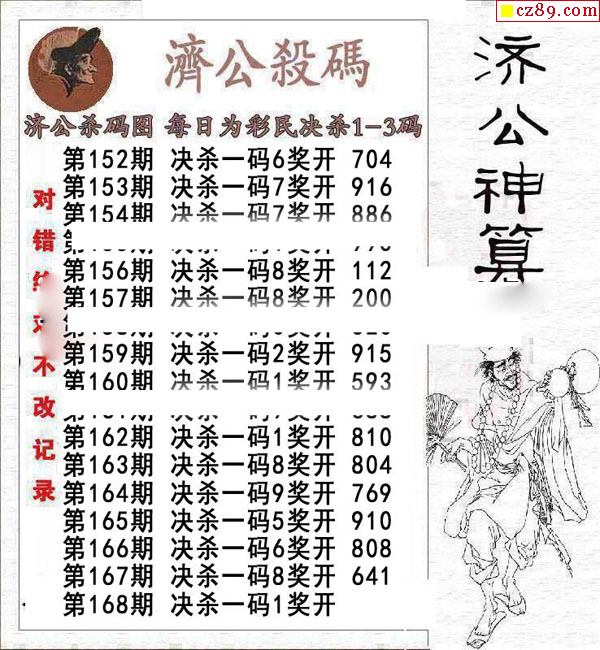 cz89.com
濟公殺碼
济公杀码图 每日为彩民决杀1-3码
第152期 决杀一码6奖开 704
第153期 决杀一码7奖开 916
第154期 决杀一码7奖开 886
第156期 决杀一码8奖开 112
第157期 决杀一码8奖开 200
第159期 决杀一码2奖开 915
第160期 决杀一码1奖开 593
第162期 决杀一码1奖开 810
第163期 决杀一码8奖开 804
第164期 决杀一码9奖开 769
第165期 决杀一码5奖开 910
第166期 决杀一码6奖开 808
第167期 决杀一码8奖开 641
第168期 决杀一码1奖开
对错 不改记录
济公神算